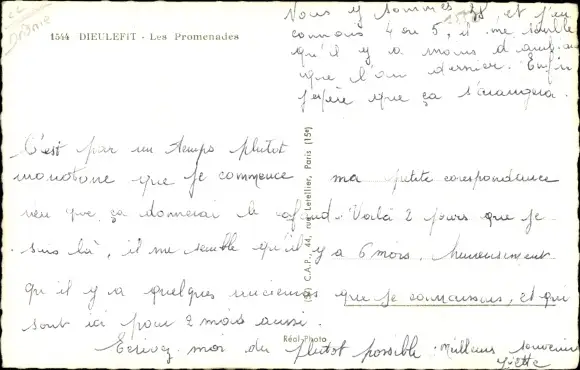 Drôme
1544 DIEULEFIT - Les Promenades
C'est par un temps plutot
monotone que je commence ma petite corespondance
rien que ça donnerai le cafard. Voilà 2 jours que je
suis là, il me semble qu'il y a 6 mois, heureusement
qu'il y a quelques anciennes que je connaissais, et qui
sont ici pour 2 mois aussi.
Ecrivez moi du plutot possible. Meilleurs souvenirs
Yvette
Vous y sommes 38, et j'en
connais 4 ou 5, il me semble
qu'il y a moins d'
que l'an dernier. Enfin
j'espère que ça s'arangera.
C.A.P., 44, rue Letellier, Paris (15e)
Réal-Photo